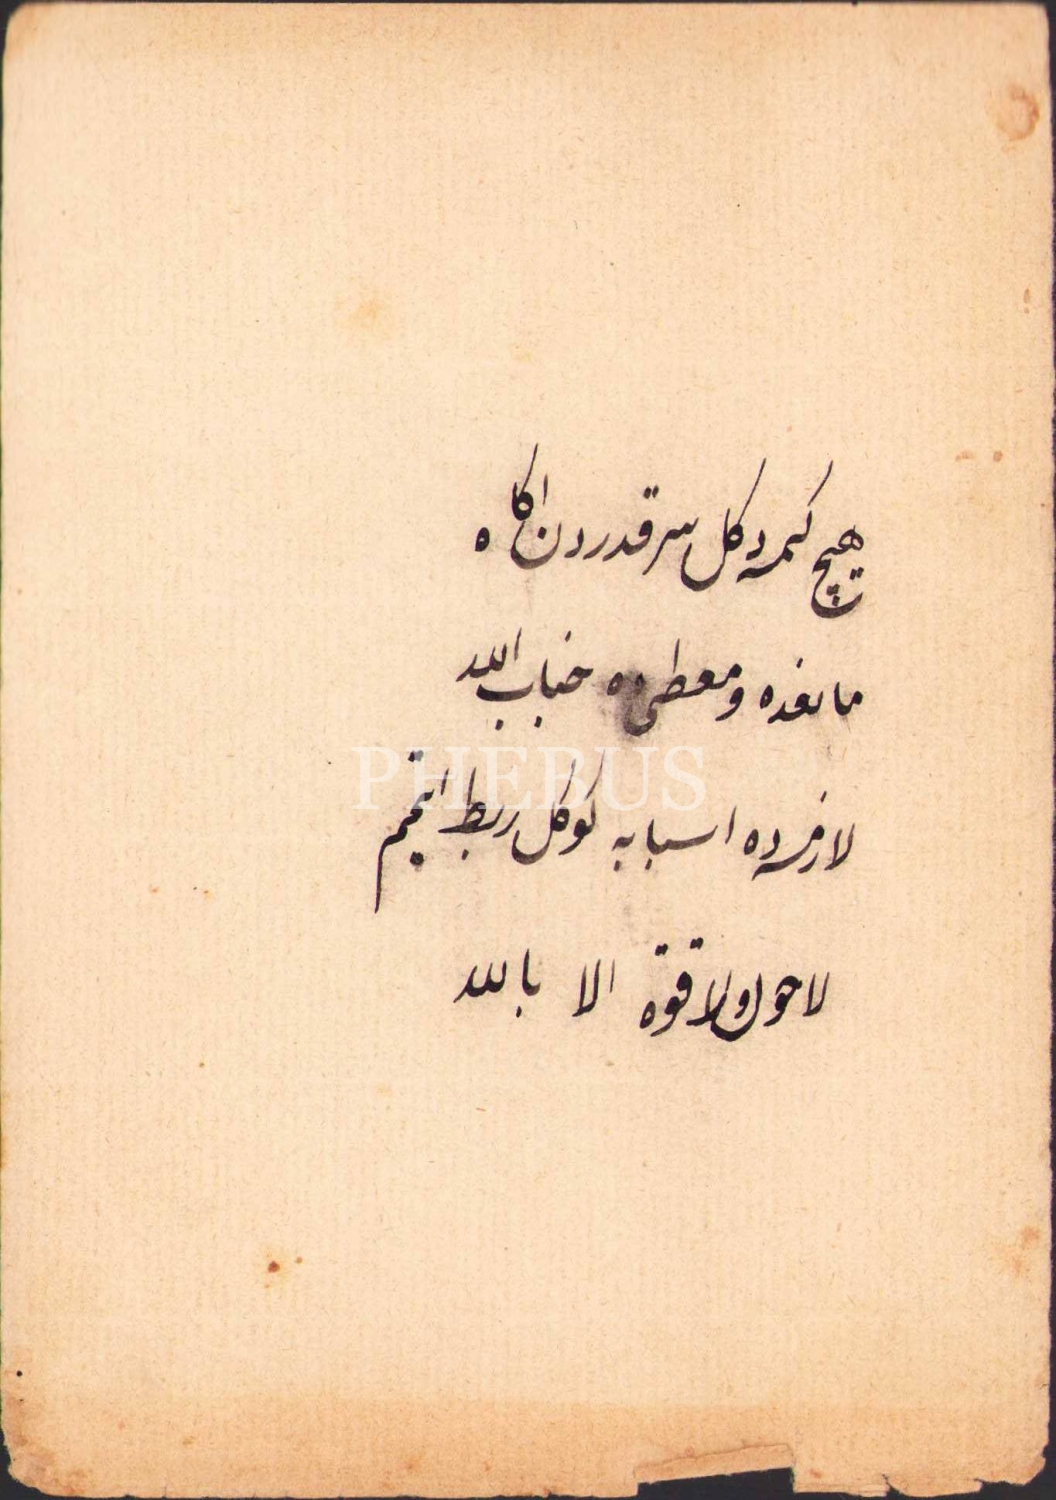 هیچ کمسه دکل سر قدردن اکاه
مانعده و معطیده جناب الله
PHEBUS
لازمسه ده اسبابه کوکل ربط ایتمم
لا حول ولا قوة الا بالله